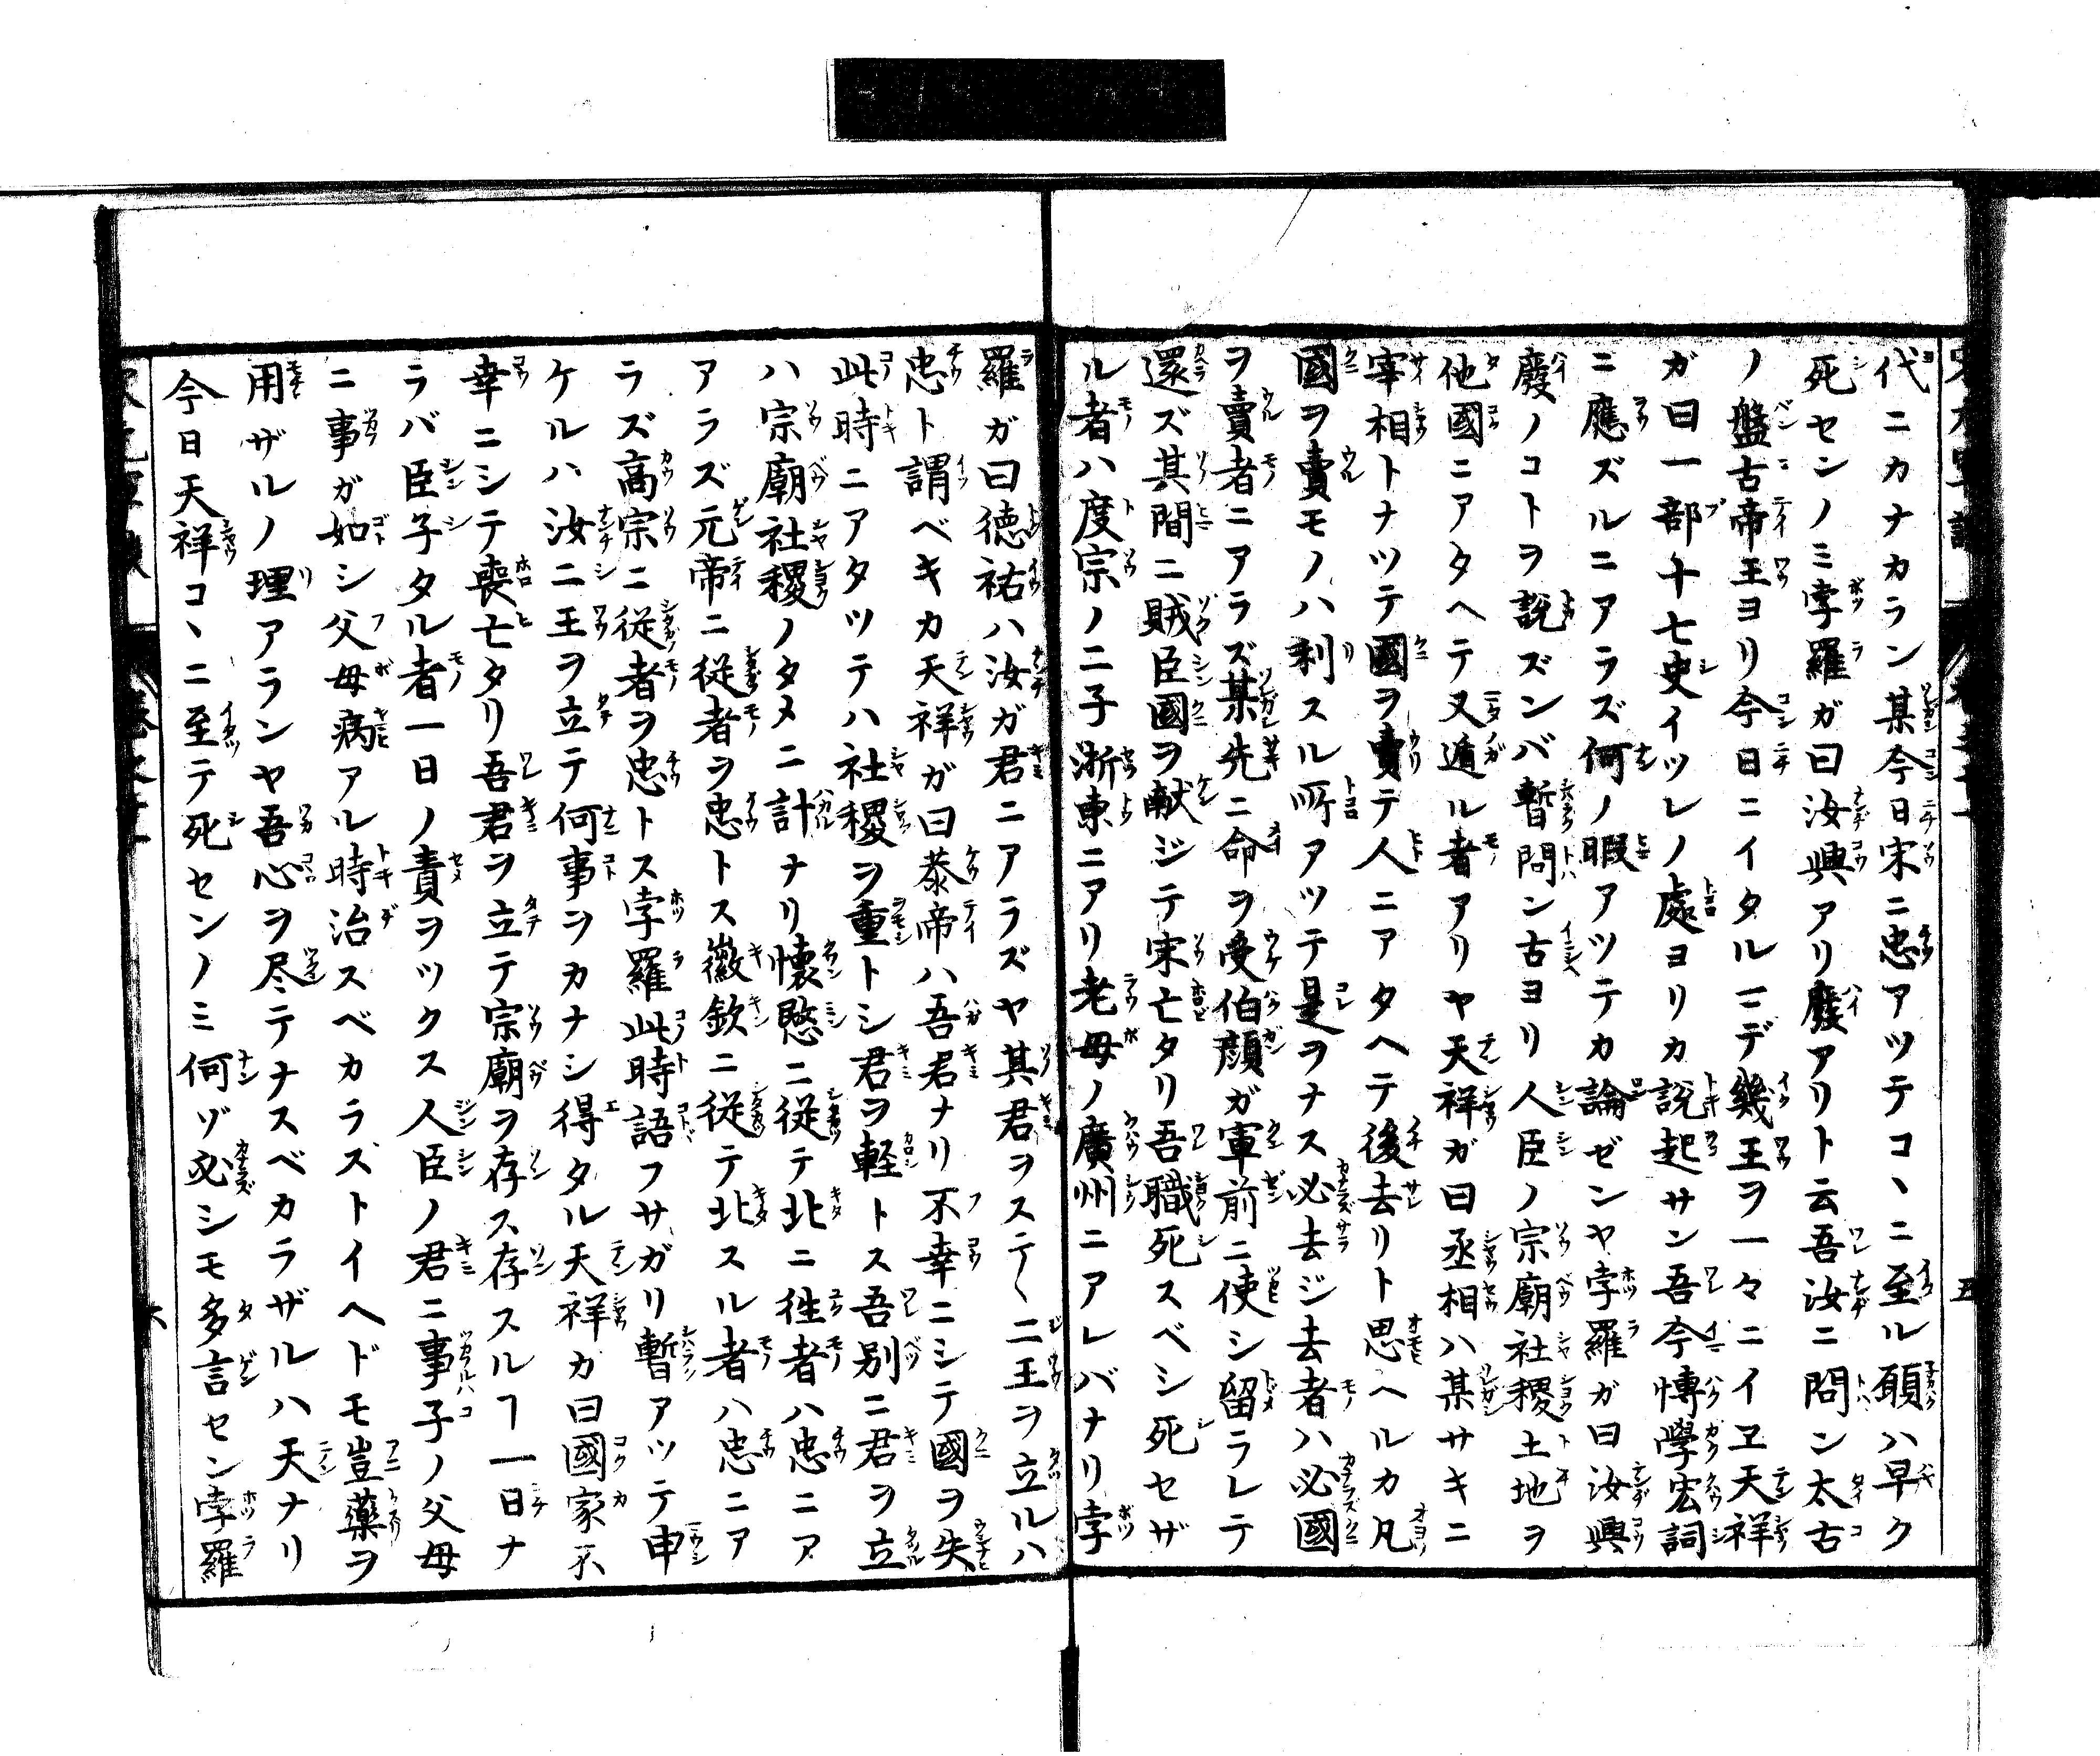 代ニカナカラン某今日宋ニ忠アツテコヽニ至ル願ハ早ク
死センノミ孛羅ガ曰汝興アリ廢アリト云吾汝ニ問ン太古
ノ盤古帝王ヨリ今日ニイタルニデ幾王ヲ一々ニイヱ天祥
ガ曰一部十七史イツレノ處ヨリカ說起サン吾今博學宏詞
ニ應ズルニアラズ何ノ暇アツテカ論ゼンヤ孛羅ガ曰汝興
廢ノコトヲ說ズンバ暫問ン古ヨリ人臣ノ宗廟社稷土地ヲ
他國ニアタヘテ又遁ル者アリヤ天祥ガ曰丞相ハ某サキニ
宰相トナツテ國ヲ賣テ人ニアタヘテ後去リト思ヘルカ凡
國ヲ賣モノハ利スル所アツテ是ヲナス必去ジ去者ハ必國
ヲ賣者ニアラズ某先ニ命ヲ受伯顔ガ軍前ニ使シ留ラレテ
還ズ其間ニ賊臣國ヲ献ジテ宋亡タリ吾職死スベシ死セザ
ル者ハ度宗ノ二子浙東ニアリ老母ノ廣州ニアレバナリ孛
羅ガ曰徳祐ハ汝ガ君ニアラズヤ其君ヲステヽ二王ヲ立ルハ
忠ト謂ベキカ天祥ガ曰恭帝ハ吾君ナリ不幸ニシテ國ヲ失
此時ニアタツテハ社稷ヲ重トシ君ヲ軽トス吾別ニ君ヲ立
ハ宗廟社稷ノタメニ計ナリ懐愍ニ従テ北ニ徃者ハ忠ニア
アラズ元帝ニ従者ヲ忠トス徽欽ニ従テ北スル者ハ忠ニア
ラズ高宗ニ従者ヲ忠トス孛羅此時語フサガリ暫アツテ申
ケルハ汝ニ王ヲ立テ何事ヲカナシ得タル天祥カ曰國家不
幸ニシテ喪亡タリ吾君ヲ立テ宗廟ヲ存ス存スルヿ一日ナ
ラバ臣子タル者一日ノ責ヲツクス人臣ノ君ニ事子ノ父母
ニ事ガ如シ父母病アル時治スベカラストイヘドモ豈藥ヲ
用ザルノ理アランヤ吾心ヲ尽テナスベカラザルハ天ナリ
今日天祥コヽニ至テ死センノミ何ゾ必シモ多言セン孛羅